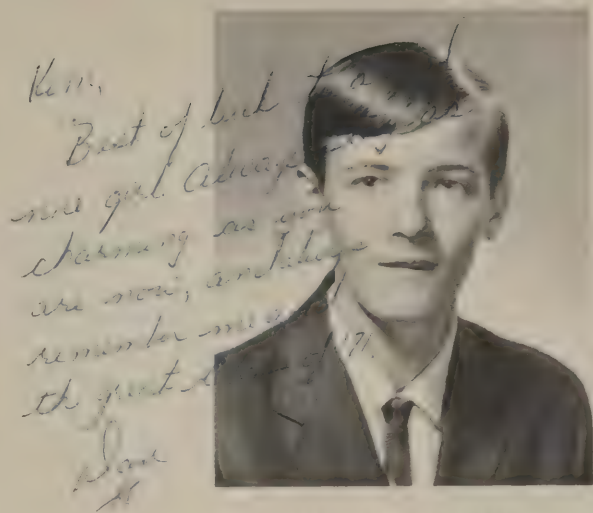 Kim,
Best of luck to a
nice girl. Always
charming as you
are now, and
remember me
the great
Dave